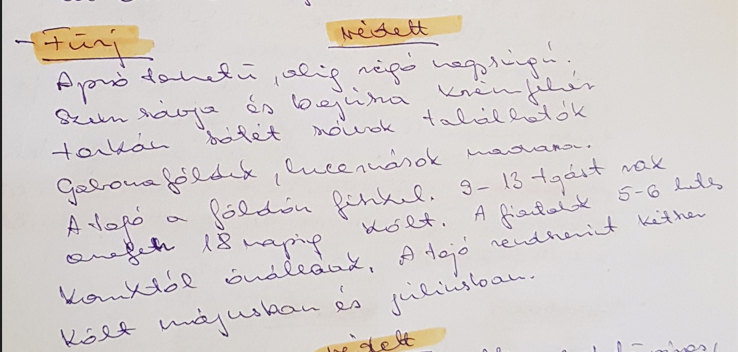 - Fürj védett
Apró termetű, alig rigó nagyságú.
Szemsávja és bajusza krémfehér
torkán sötét sávok találhatók
Gabonaföldek, lucernások madara.
A tojó a földön fészkel. 9-13 tojást rak
amelyek 18 napig költ. A fiatalok 5-6 hetes
koruktól önállóak. A tojó rendszerint kétszer
költ májusban és júliusban.
védett